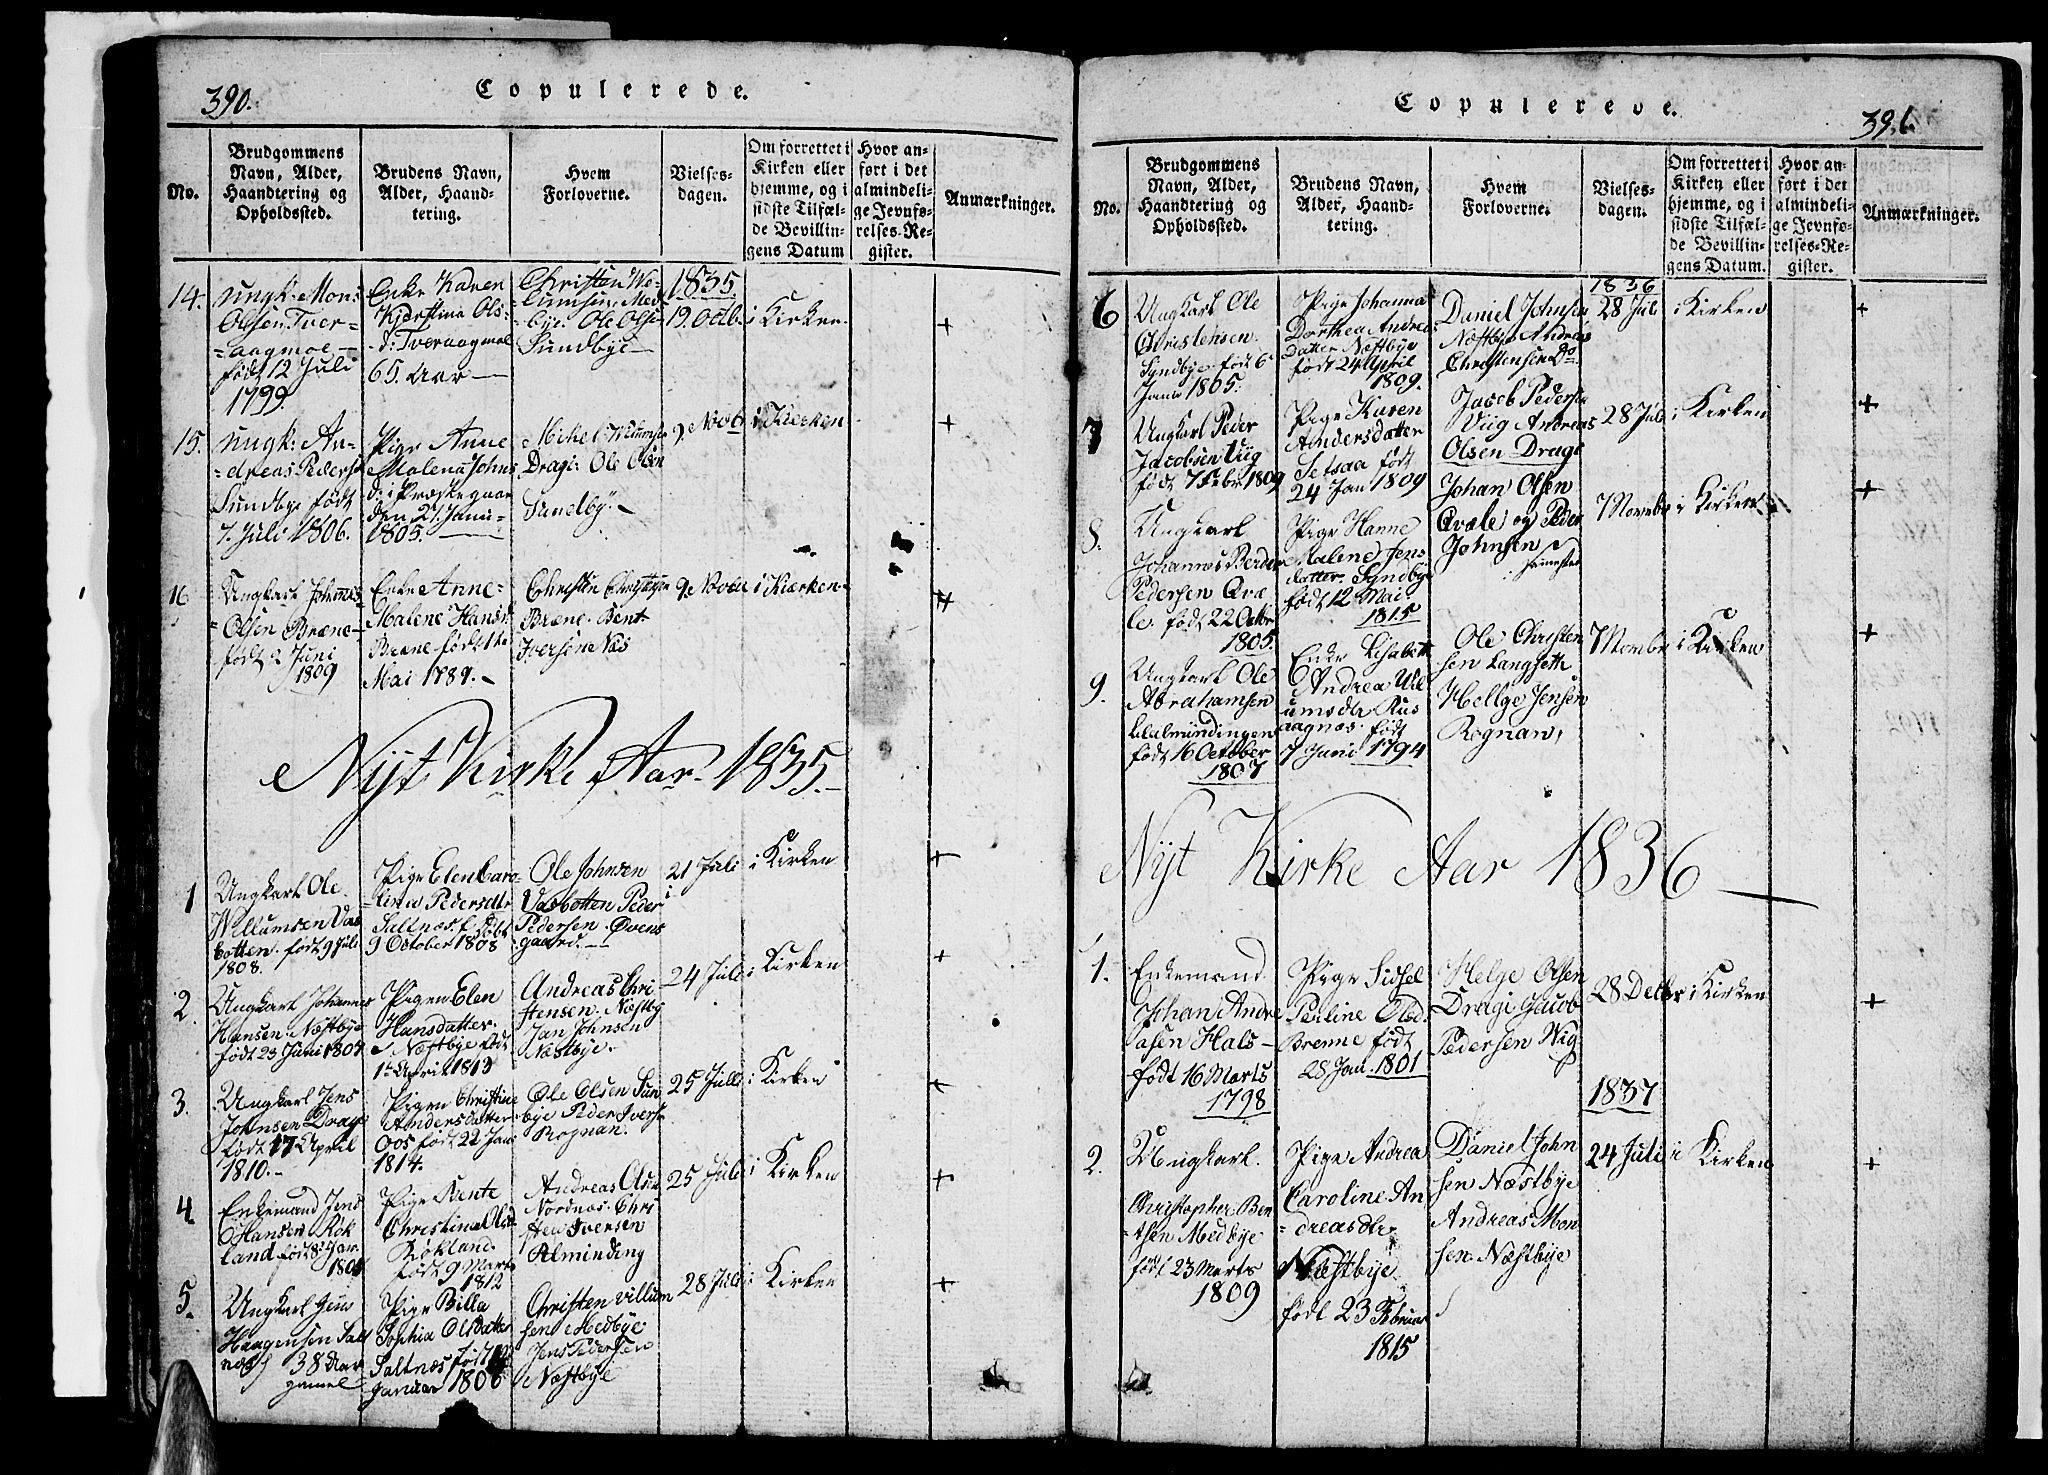 390.
Copulerede.
No.
Brudgommens
Navn, Alder,
Haandtering og
Opholdssted.
Brudens Navn,
Alder, Haand-
tering.
Hvem
Forloverne.
Vielses-
dagen.
Om forrettet i
Kirken eller
hjemme, og i
sidste Tilfæl-
de Bevillin-
gens Datum
Hvor an-
ført i det
almindeli-
ge Jevnfø-
relses-Re-
gister.
Anmærkninger.
14.
Ungk: Mons
Olsen Tver-
=aagmoe
født 12 Juli
1799.
Enke Karen
Kjerstina Ols-
d: Tveraagmoe
65. Aar
Christen We-
=lumsen Med-
bye. Ole Olse
Sundbye
1835.
19. Octb.
i Kirken
+
15.
Ungk: An-
dreas Peders
Sundbye født
7. Juli 1806.
Pige Anne
Malena Johns
d: i Præstegaar
den 21. Janu-
1805.
Michel Willumsen
Dragi: Ole Olsen
Sundby.
9. Novb
i Kierken
+
16
Ungkarl Johannes
Olsen Bræne
født 2 Juni
1809
Enke Anne
Malene Hansd
Bræne født 1te
Mai 1789.
Christen Christensen
Bræne. Bent
Iversen Næs
9. Novbr
i Kierken
+
Nyt Kirke Aar 1835.
1
Ungkarl Ole
Willumsen Vas
botten. født 9 Juli
1808.
Pige Elen Caro-
=lina Pedersdtr
Saltnæs f. døbt
9 October 1808
Ole Johnsen
Vasbotten Peder
Pedersen Øvens
gaard.
21 Juli
i Kirken
+
2.
Ungkarl Johannes
Hansen Næstbye
født 23 Juni 1807
Pigen Elen
Hansdatter.
Næstbye født
1te April 1813
Andreas Chri
stensen. Næstby
Jan Johnsen
Næstbye.
24 Juli
i Kirken
+
3.
Ungkarl Jens
Johnsen Drage
født 17 April
1810.
Pigen Christine
Andersdatter
Oos født 22 Jan
1814.
Ole Olsen Sun
bye Peder Ivers
Rognan.
25 Juli
i Kirken
+
4.
Enkemand Jens
Hansen Røk
land født 8 Jan
Pige Bente
Christina Olsd
Røkland
født 9 Marts
1812
Andreas Olsen
Nordnæs. Chri
sten Iversen
Alminding
25 Juli
i Kirken
+
5.
Ungkarl Jens
Haagensen Salt
næs 38 Aar
gamel
Pige Billa
Sophia Olsdatter
Saltnæs født
Januar 1806
Christen Villum
sen Medbye
Jens Pedersen
Næstbye
28 Juli
i Kirken
+
Copulerede.
391.
No.
Brudgommens
Navn, Alder,
Haandtering og
Opholdssted.
Brudens Navn,
Alder, Haand-
tering.
Hvem
Forloverne.
Vielses-
dagen.
Om forrettet i
Kirken eller
hjemme, og i
sidste Tilfæl-
de Bevillin-
gens Datum.
Hvor an-
ført i det
almindeli-
ge Jevnfø-
relses-Re-
gister.
Anmærkninger.
6
Ungkarl Ole
Christensen
Syndbye født 6
Janu 1805.
Pige Johanna
Dorthea Andreas
datter Næstbye
født 24 April
1809.
Daniel Johnsen
Næstbye Andreas
Christensen Do
1836
28 Juli
i Kirken
+
7
Ungkarl Peder
Jacobsen Viig
født 7 Febr 1809
Pige Karen
Andersdatter
Setsaa født
24 Jan 1809
Jacob Pedersen
Viig Andreas
Olsen Drage
28 Juli
i Kirken
+
8.
Ungkarl
Johannes Berder
Pedersen Qvæ
le. født 22 Octbr
1805.
Pige Hanne
Malene Jens
datter. Syndbye
født 12 Mai
1815
Johan Olsen
Qvæle og Peder
Johnsen
7 Novembr
i Kirken
+
9.
Ungkarl Ole
Abrahamsen
Almindingen
født 16 October
1807
Enke Lisabeth
Andrea Wil
umsdtr Rus
aagnæs. født
7 Juni 1794
Ole Christen
sen Langseth
Hellge Jensen
Rognan,
7 Novembr
i Kirken
+
Nyt Kirke Aar 1836
1.
Enkemand
Johan Andre
asen Hals
født 16 Marts
1798
Pige Sidsel
Pauline Olsd.
Brenne født
28 Jan. 1801
Helge Olsen
Dragi Jacob
Pedersen Wig
28 Decbr
i Kirken
+
1837
2.
Ungkarl.
Christopher Ben
tsen Medbye
født 23 Marts
1809
Pige Andrea
Caroline An
=dreasdtr
Næstbye
født 23 Februar
1815
Daniel John
sen Næstbye
Andreas Mon
sen. Næstbye
24 Juli
i Kirken
+